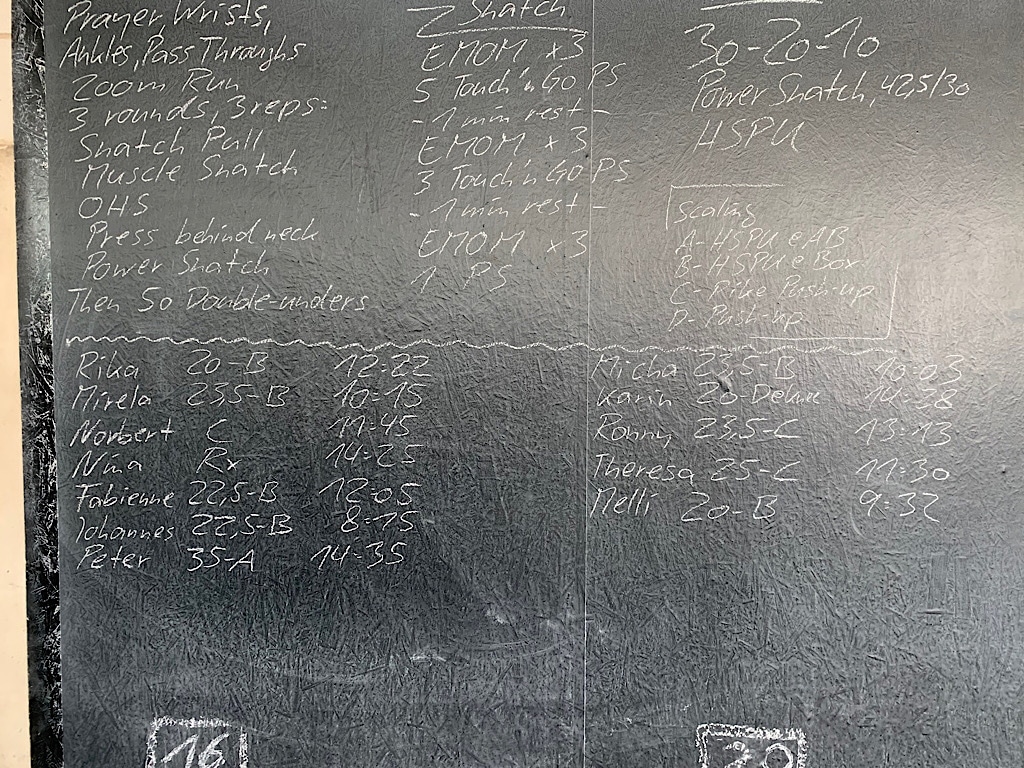 Prayer, Wrists,
Ankles, Pass Throughs
200m Run
3 rounds, 3 reps:
Snatch Pull
Muscle Snatch
OHS
Press behind neck
Power Snatch
Then 50 Double-unders
Snatch
EMOM x3
5 Touch'n Go PS
- 1 min rest -
EMOM x 3
3 Touch'n Go PS
- 1 min rest -
EMOM x3
1 PS
30-20-10
Power Snatch, 42,5/30
HSPU
Scaling
A- HSPU @ AB
B- HSPU @ Box
C- Pike Push-up
D- Push-up
Rika 20-B 12:22
Mirela 23,5-B 10:15
Norbert C 11:45
Nina Rx 14:25
Fabienne 22,5-B 12:05
Johannes 22,5-B 8:15
Peter 35-A 14:35
Micha 23,5-B 10:03
Karin 20- 14:38
Ronny 23,5-C 13:13
Theresa 25-C 11:30
Melli 20-B 9:32
16
20